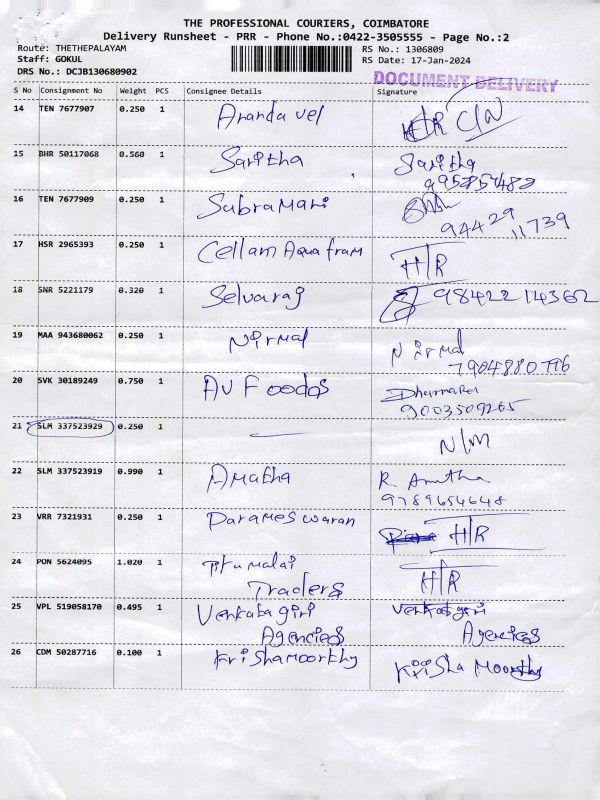 THE PROFESSIONAL COURIERS, COIMBATORE
Delivery Runsheet - PRR - Phone No.:0422-3505555 - Page No.:2
Route: THETHEPALAYAM
RS No.: 1306809
Staff: GOKUL
RS Date: 17-Jan-2024
DRS No.: DCJB130680902
DOCUMENT DELIVERY
S No Consignment No Weight PCS Consignee Details Signature
14 TEN 7677907 0.250 1 Ananda vel H/R C/N
15 BHR 50117068 0.560 1 Saritha Saritha
16 TEN 7677909 0.250 1 Subramani
94429
11739
17 HSR 2965393 0.250 1 Cellam Aqua fram H/R
18 SNR 5221179 0.320 1 Selvaraj 9842214362
19 MAA 943680062 0.250 1 Nirmal Nirmal
20 SVK 30189249 0.750 1 AV Foodas
9003509265
21 SLM 337523929 0.250 1 — N/M
22 SLM 337523919 0.990 1 Amatha R Amutha
9789654648
23 VRR 7321931 0.250 1 Parameswaran H/R
24 PON 5624095 1.020 1 Tirumalai H/R
Traders
25 VPL 519058170 0.495 1 Venkatagiri Venkatgiri
Agencies Agencies
26 CDM 50287716 0.100 1 Krishamoorthy Krisha Moorthy